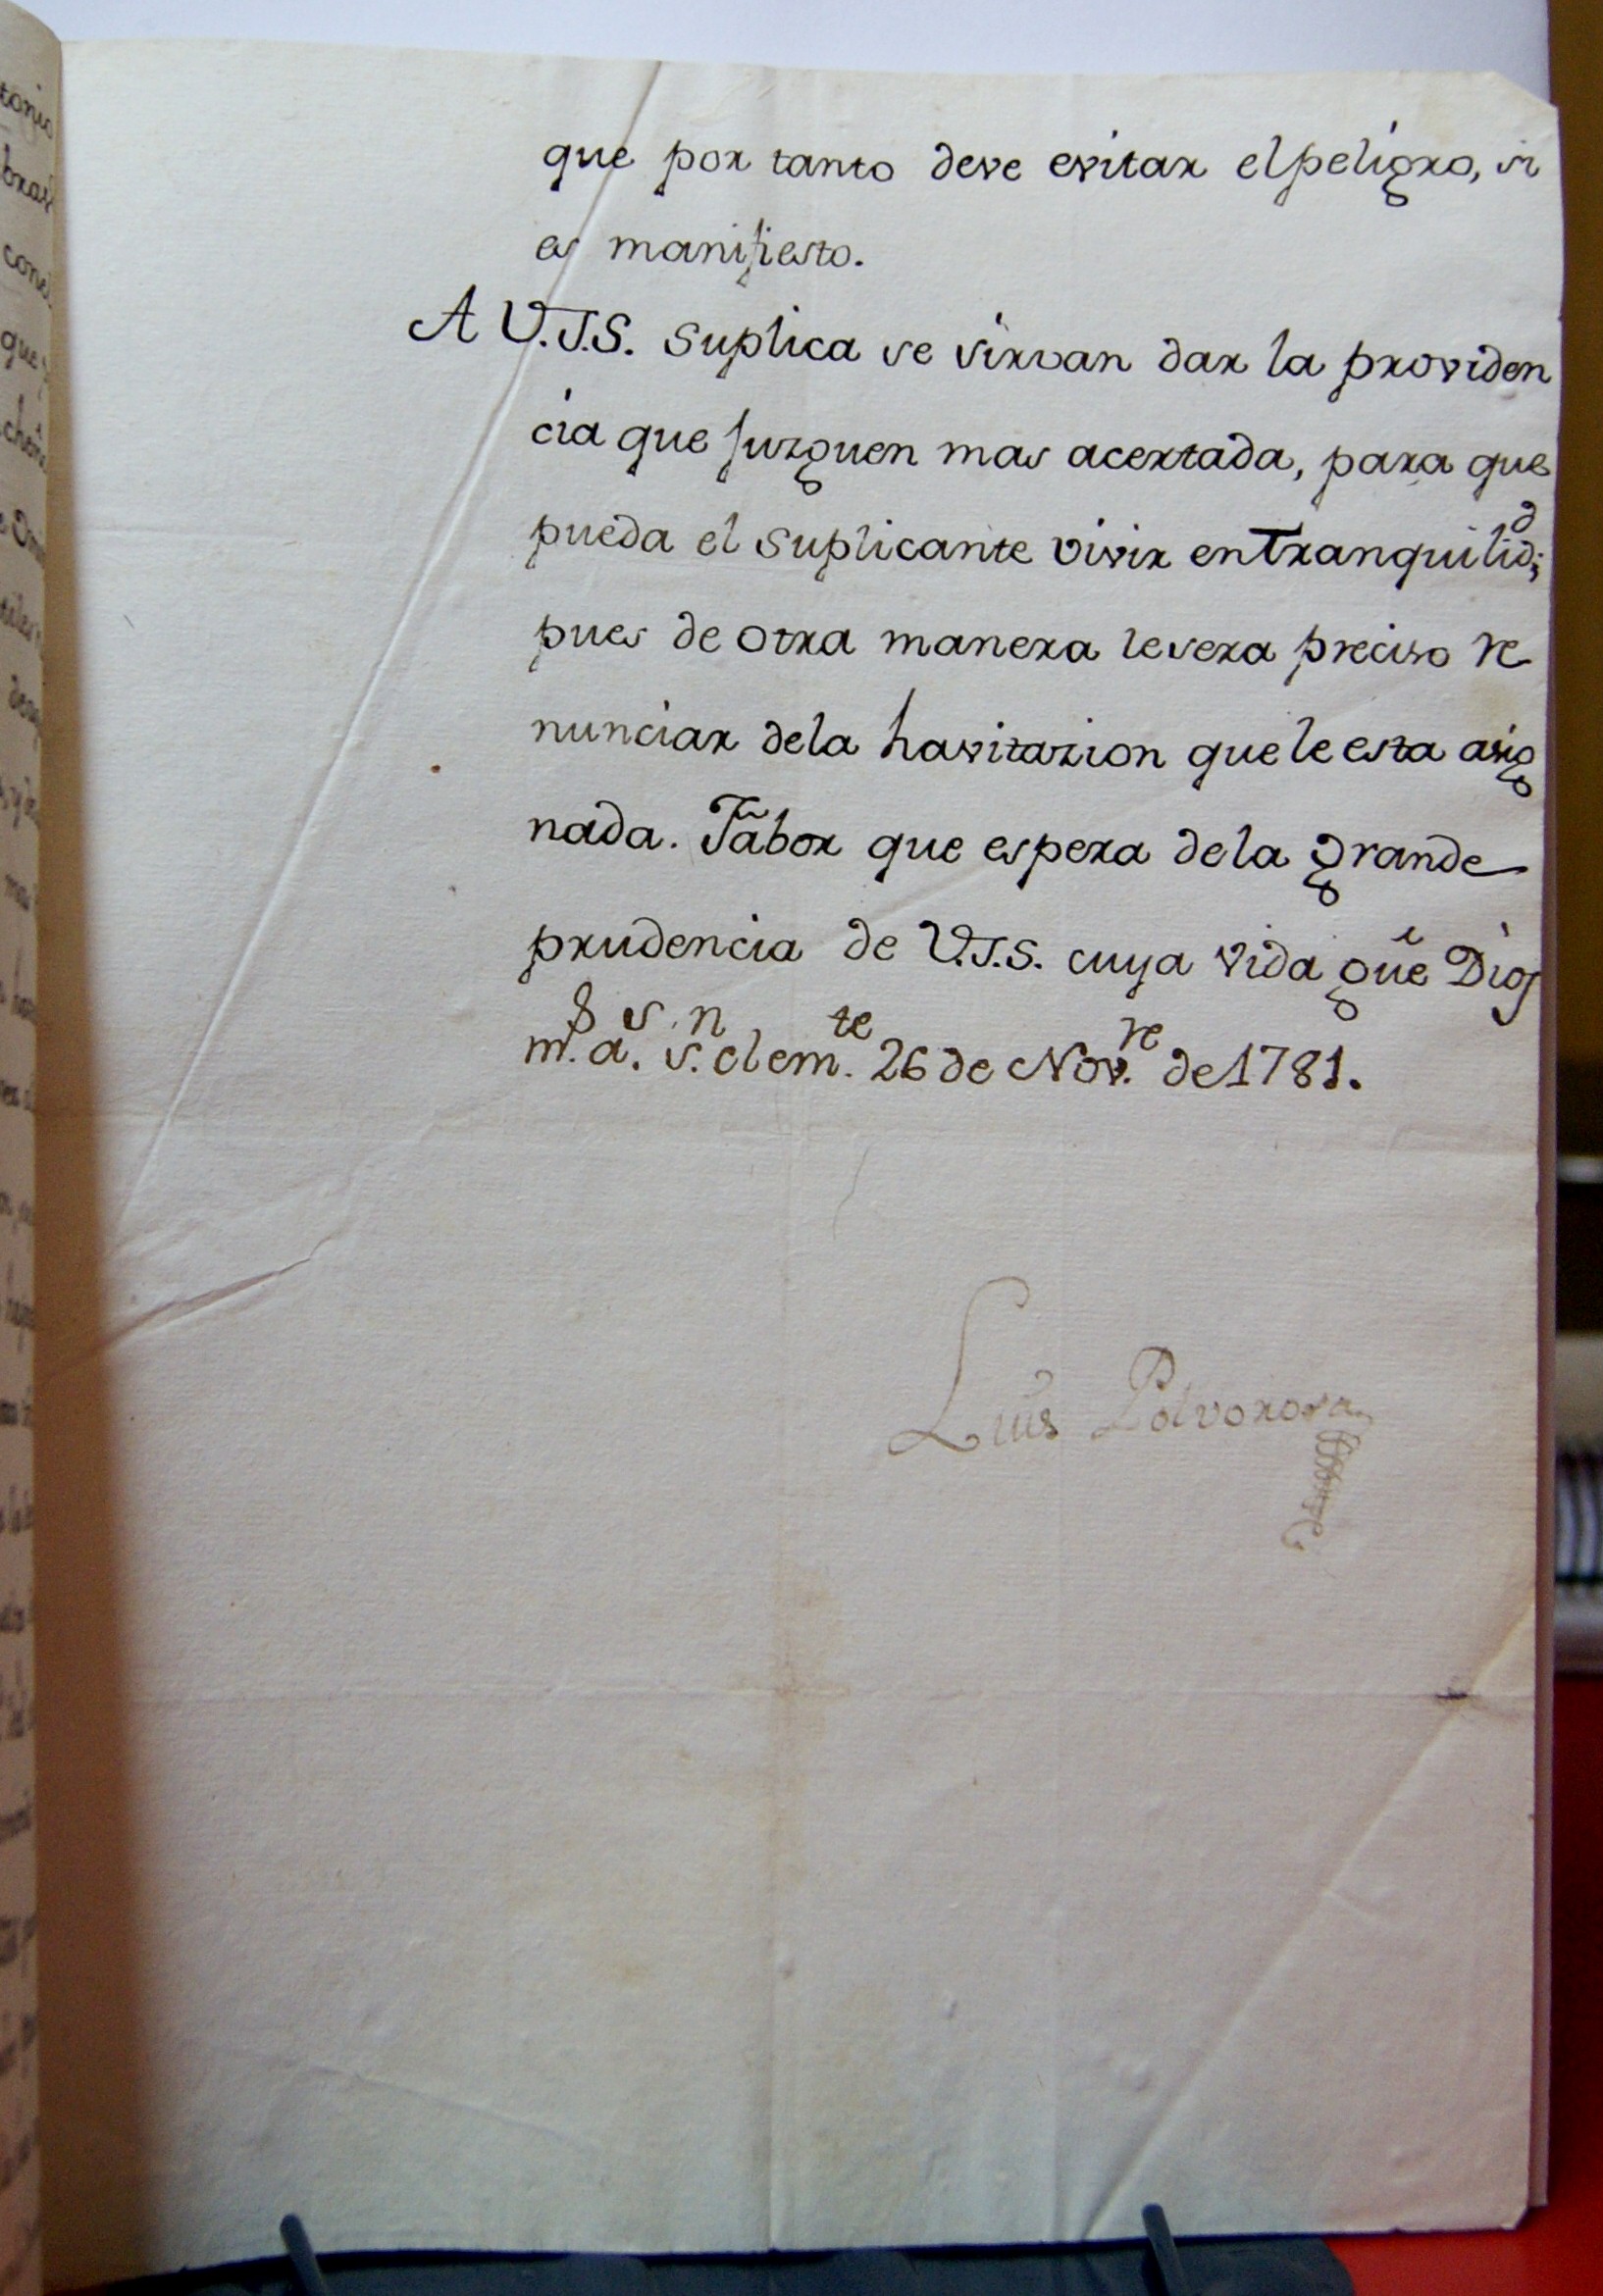 que por tanto deve evitar el peligro, si
es manifiesto.
A V.I.S. suplica se sirvan dar la providen
cia que Juzguen mas acertada, para que
pueda el suplicante vivir en Tranquilid.d;
pues de otra manera le sera preciso re
nunciar de la havitazion que le esta asig
nada. Fãbor que espera de la grande
prudencia de V.I.S. cuya vida gũe Dios
m.s a.s S.n Clem.te 26 de Nov.re de 1781.
Luis Polvorosa